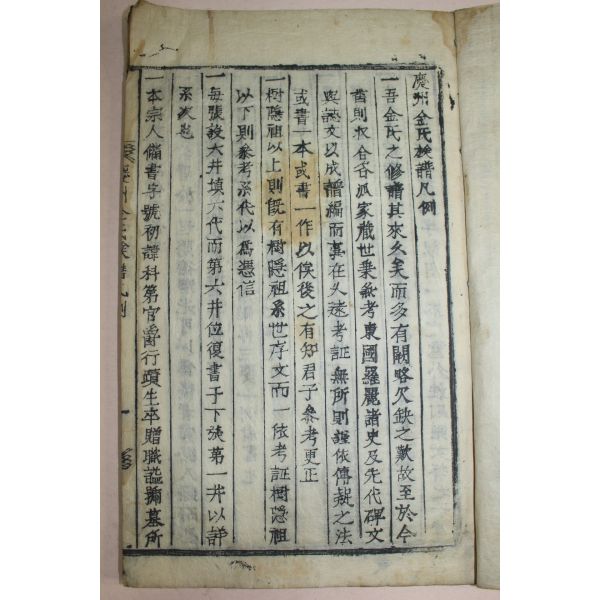 慶州金氏族譜凡例
一吾金氏之修譜其來久矣而多有闕略欠缺之歎故至於今
番則收合各派家藏世乘參考東國羅麗諸史及先代碑文
與誌文以成譜編而事在久遠考証無所則謹依傳疑之法
或書一本或書一作以俟後之有知君子參考更正
一樹隱祖以上則旣有樹隱祖系世序文而一依考証樹隱祖
以下則參考系代以爲憑信
一每張設六井填六代而第六井位復書于下張第一井以詳
系次也
一本宗人備書字號初諱科第官爵行蹟生卒贈職謚號墓所
慶州金氏族譜凡例 一